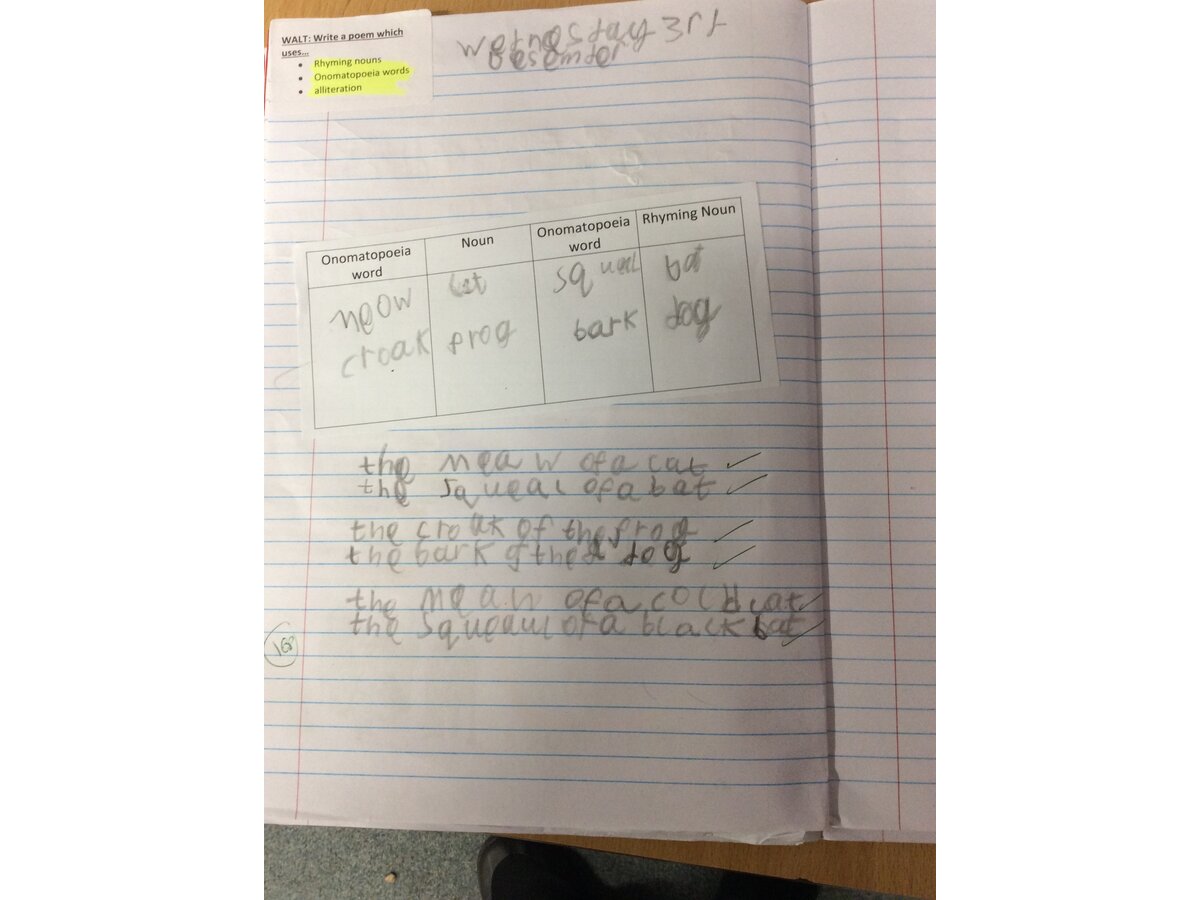 WALT: Write a poem which
uses...
• Rhyming nouns
• Onomatopoeia words
• alliteration
Onomatopoeia word | Noun | Onomatopoeia word | Rhyming Noun
meow | cat | squeal | bat
croak | frog | bark | dog
the meaw of a cat
the squeal of a bat
the croak of the frog
the bark of the dog
the meaw of a cold cat
the squeaul of a black bat